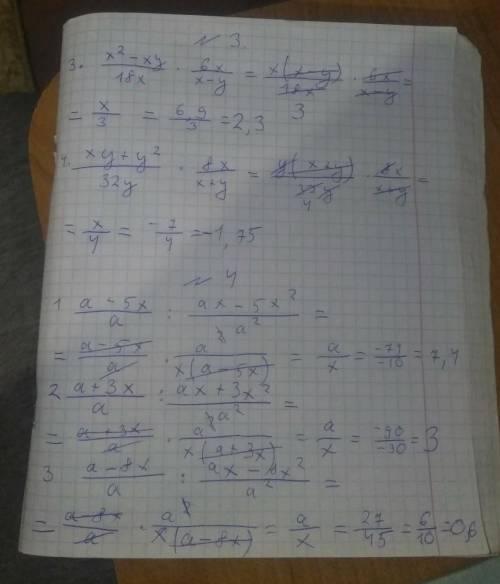 № 3.
3. (x² - xy)/(18x) · (6x)/(x-y) = (x(x-y))/(18x) · (6x)/(x-y) =
3
= x/3 = 6,9/3 = 2,3
4. (xy + y²)/(32y) · (8x)/(x+y) = (y(x+y))/(32y) · (8x)/(x+y) =
4
= x/4 = -7/4 = -1,75
№ 4
1 (a-5x)/a : (ax-5x²)/a² =
= (a-5x)/a · a²/(x(a-5x)) = a/x = -74/-10 = 7,4
2 (a+3x)/a : (ax+3x²)/a² =
= (a+3x)/a · a²/(x(a+3x)) = a/x = -90/-30 = 3
3 (a-8x)/a : (ax-8x²)/a² =
= (a-8x)/a · a²/(x(a-8x)) = a/x = 27/45 = 6/10 = 0,6